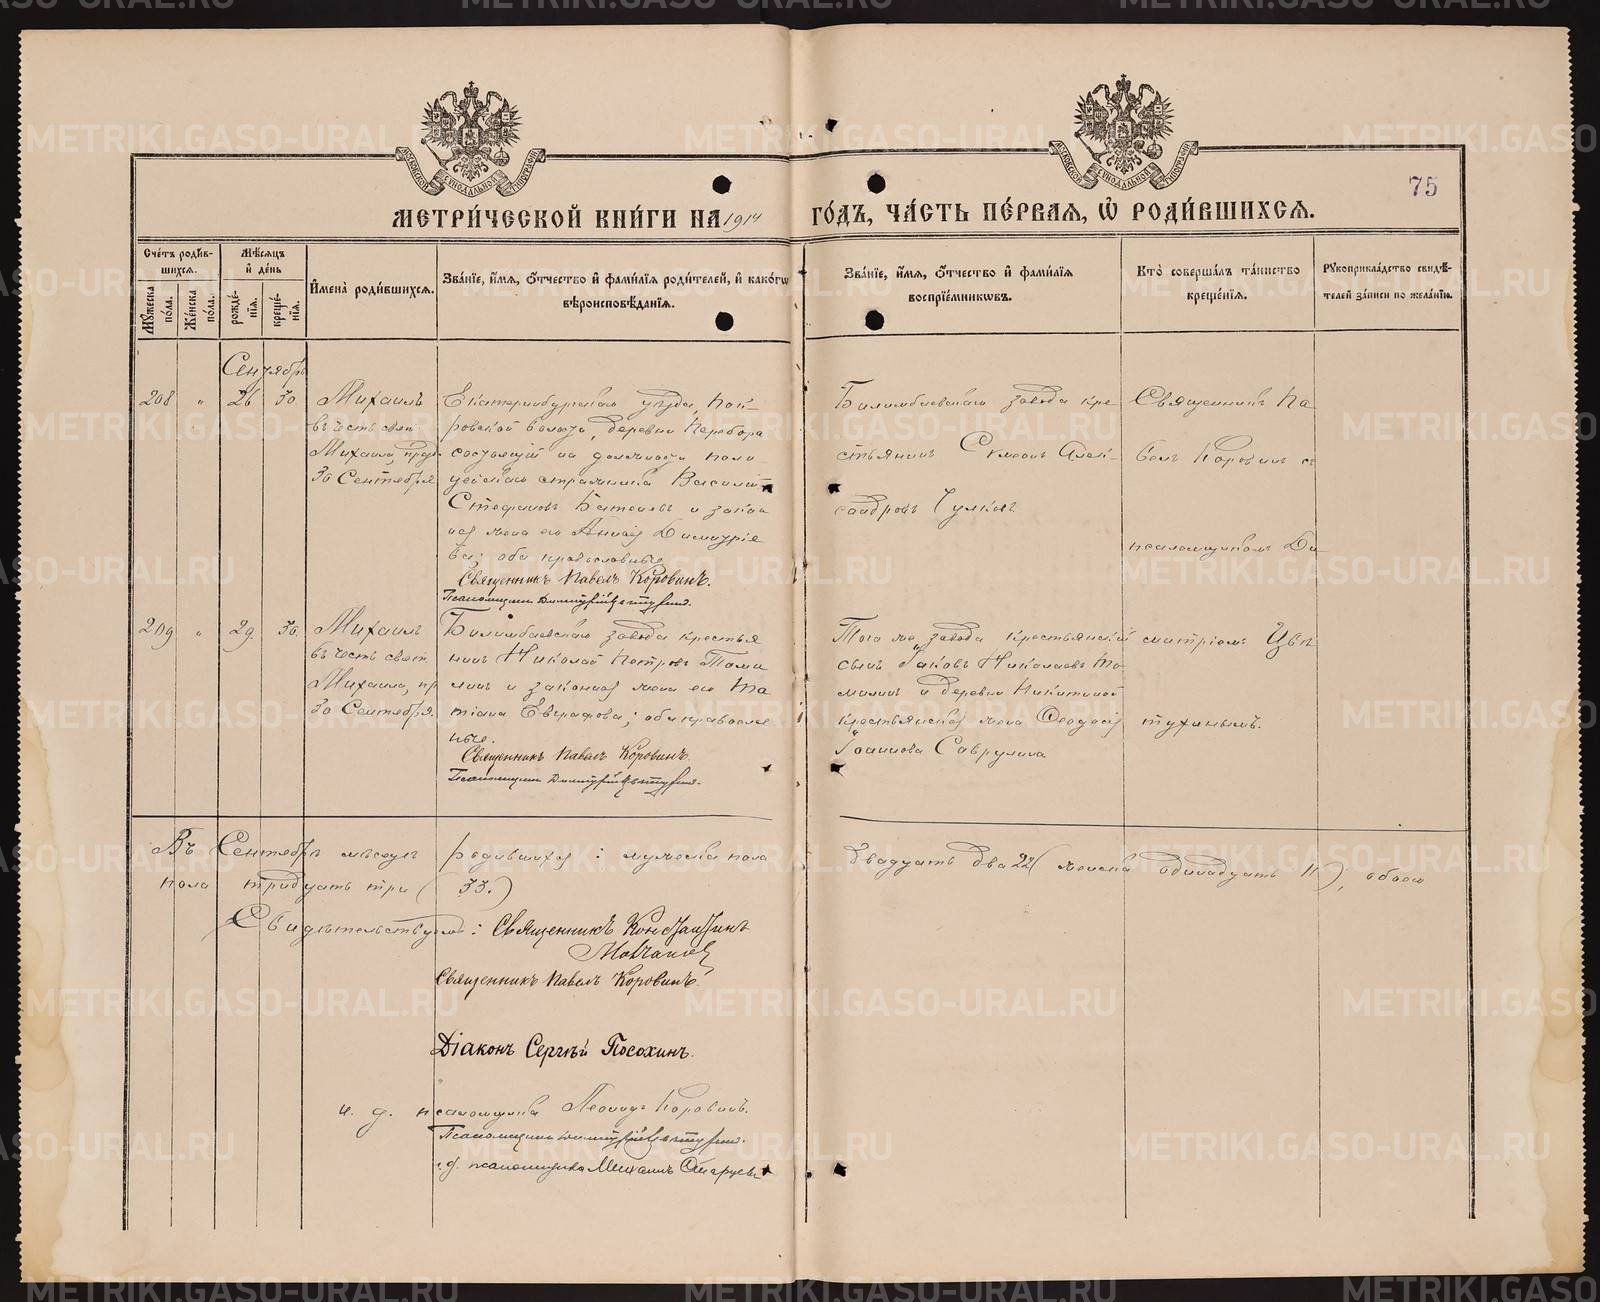 75
МЕТРИ́ЧЕСКОЙ КНИ́ГИ НА 1914 ГО́ДЪ, ЧА́СТЬ ПЕ́РВАѦ, Ѡ РОДИ́ВШИХСѦ.
Сче́тъ роди́в-
шихсѧ.
Мꙋ́жеска по́ла.
Же́нска по́ла.
Мѣ́сѧцъ
и де́нь
рожде́-
нїѧ.
креще́-
нїѧ.
Имена̀ роди́вшихсѧ.
Зва́нїе, и́мѧ, ѻ́тчество и фами́лїѧ роди́телей, и како́гѡ
вѣроисповѣ́данїѧ.
Зва́нїе, и́мѧ, ѻ́тчество и фами́лїѧ
воспрїе́мникѡвъ.
Кто̀ соверша́лъ та́инство
креще́нїѧ.
Рꙋкоприкла́дство свидѣ́-
телей за́писи по жела́нїю.
Сентябрь
208 " 26 30.
Михаилъ
въ честь свят.
Михаила, праз.
30 Сентября.
Екатеринбургскаго уѣзда, Пок-
ровской волости, деревни Перебора
состоящій на должности поли-
цейскаго стражника Василій
Стефановъ и закон
ная жена его Анна Димитріе
ва; оба православные.
Священникъ Павелъ Коровинъ.
Псаломщикъ Димитрій Цвѣтухинъ.
Билимбаевскаго завода кре
стьянинъ Симеонъ Алек-
сандровъ Чулковъ
Священникъ Па
велъ Коровинъ съ
псаломщикомъ Ди-
209 " 29 30.
Михаилъ
въ честь свят.
Михаила, пр
30 Сентября.
Билимбаевскаго завода крестья
нинъ Николай Петровъ Томи
линъ и законная жена его Та
тіана Евграфова; оба православ
ные.
Священникъ Павелъ Коровинъ
Псаломщикъ Димитрій Цвѣтухинъ.
Того же завода крестьянскій
сынъ Іаковъ Николаевъ То-
милинъ и деревни Никитиной
крестьянская жена Ѳеодосія
Іоаннова Саврулина
митріемъ Цвѣ
тухинымъ.
Въ Сентябрѣ мѣсяцѣ родившихся: мужеска пола двадцать два 22 (женска одиннадцать 11), обоего
пола тридцать три (33.)
Свидѣтельствуемъ: Священникъ Константинъ
Священникъ Павелъ Коровинъ.
Діаконъ Сергѣй Посохинъ.
и. д. псаломщика Леонидъ Коровинъ.
Псаломщикъ Димитрій Цвѣтухинъ.
и.д. псаломщика Михаилъ
METRIKI.GASO-URAL.RU